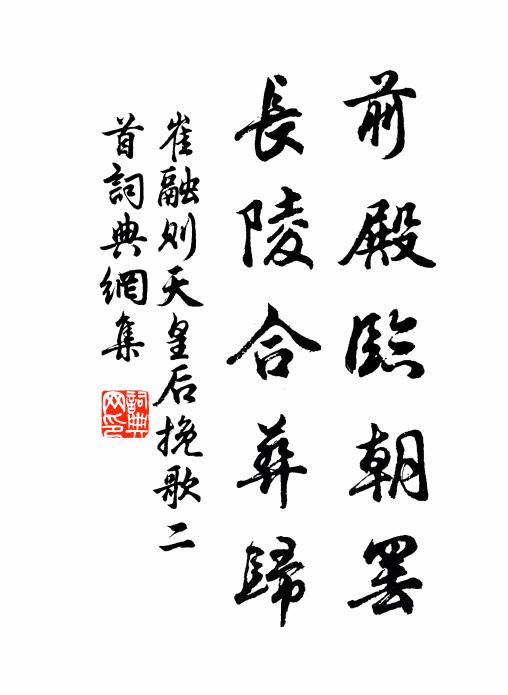 前殿臨朝罷
長陵合葬歸
崔融则天皇后挽歌二
首詞典網集
詞典
网印